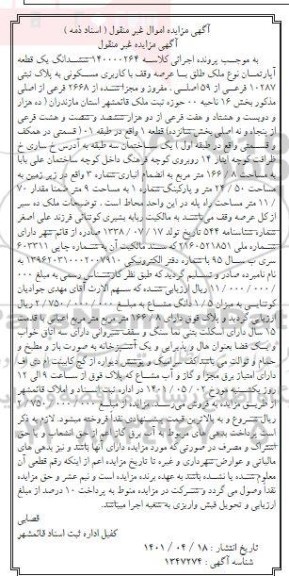 آگهی مزایده اموال غیر منقول ( اسناد ذمه )
آگهی مزایده غیر منقول
به موجب پرونده اجرائی کلاسه ۱۴۰۰۰۰۲۶۴ ششدانگ یک قطعه
آپارتمان نوع ملک طلق با عرصه وقف با کاربری مسکونی به پلاک ثبتی
۱۰۲۸۷ فرعی از ۵۹ اصلی . مفروز و مجزا شده از ۲۶۶۸ فرعی از اصلی
مذکور بخش ۱۶ ناحیه ۰۰ حوزه ثبت ملک قائمشهر استان مازندران ( ده هزار
و دویست و هشتاد و هفت فرعی از دو هزار ششصد و شصت و هشت فرعی
از پنجاه و نه اصلی بخش شانزده) قطعه ۱ واقع در طبقه ۱۰۱ (قسمتی در همکف
و قسمتی واقع در طبقه اول ) یک ساختمان سه طبقه به آدرس خ ساری خ
ظرافت کوچه ایثار ۱۴ روبروی کوچه فرهنگ داخل کوچه ساختمان علی بابا
به مساحت ۱۶۶/۰۸ متر مربع به انضمام انباری شماره ۳ واقع در زیر زمین به
مساحت ۲۴/۵۰ متر و پارکینگ شماره ۱ به مساحت ۹ متر ضمنا مقدار ۷۰
/ ۱۱ متر مساحت راه پله در این واحد محاط است . توضیحات ملک ده سیر
از کل عرصه وقف می باشد به مالکیت ربابه بشیری گوتنائی فرزند علی اصغر
شماره شناسنامه ۵۴۴ تاریخ تولد ۱۷ / ۰۷ / ۱۳۳۸ صادره از قائم شهر دارای
شماره ملی ۲۱۶۰۵۲۱۸۵۱ که سند مالکیت آن به شماره چاپی ۶۰۳۳۱۱
سری ب سال ۹۵ با شماره دفتر الکترونیکی ۱۳۹۶۲۰۳۱۰۰۰۲۰۰۷۹۱۰ به
نام نامبرده صادر و تسلیم گردید که طبق نظر کارشناس رسمی به مبلغ ۰۰۰
/ ۰۰۰ / ۰۰۰ / ۱۱ ریال ارزیابی شده که سهم الارث آقای مهدی جوادیان
کوتنایی به میزان ۱/۵ دانگ مشاع به مبلغ ۰۰۰ / ۰۰۰ / ۷۵۰ / ۲ ریال
ارزیابی گردید و پلاک فوق دارای ۱۶۶/۰۸ متر مربع متر مربع اعیانی با قدمت
۱۵ سال دارای اسکلت بتنی نما سنگ و سقف شیروانی دارای سه اتاق خواب
و یک فضا بعنوان هال و پذیرایی و یک آشپزخانه به صورت باز و مطبخ و
حمام و توالت می باشد کف سرامیک و پوشش دیواره از گچ کابینت ام دی اف
دارای امتیاز برق مجزا و گاز و آب مشاع که پلاک فوق از ساعت ۹ الی ۱۲
روز یکشنبه مورخ ۰۲ / ۰۵ / ۱۴۰۱ در اداره ثبت اسناد و املاک قائمشهر
از طریق مزایده به فروش می رسد. مزایده از مبلغ ۰۰۰ / ۰۰۰ / ۷۵۰ / ۲
ریال شروع و به بالاترین قیمت پیشنهادی نقدا فروخته میشود. لازم به ذکر
است پرداخت بدهی های مربوط به آب برق گاز اعم از حق انشعاب و یا حق
اشتراک و مصرف در صورتی که مورد مزایده دارای آنها باشد و نیز بدهی های
مالیاتی و عوارض شهرداری و غیره تا تاریخ مزایده اعم از اینکه رقم قطعی آن
معلوم شده یا نشده باشد به عهده برنده مزایده است و نیم عشر و حق مزایده
نقدا وصول می گردد و شرکت در مزایده منوط به پرداخت ۱۰ درصد از مبلغ
ارزیابی و تحویل فیش واریزی به شعبه اجرا میباشد.
قصابی
کفیل اداره ثبت اسناد قائمشهر
تاریخ انتشار : ۱۸ / ۰۴ / ۱۴۰۱
شناسه آگهی : ۱۳۴۷۲۷۴